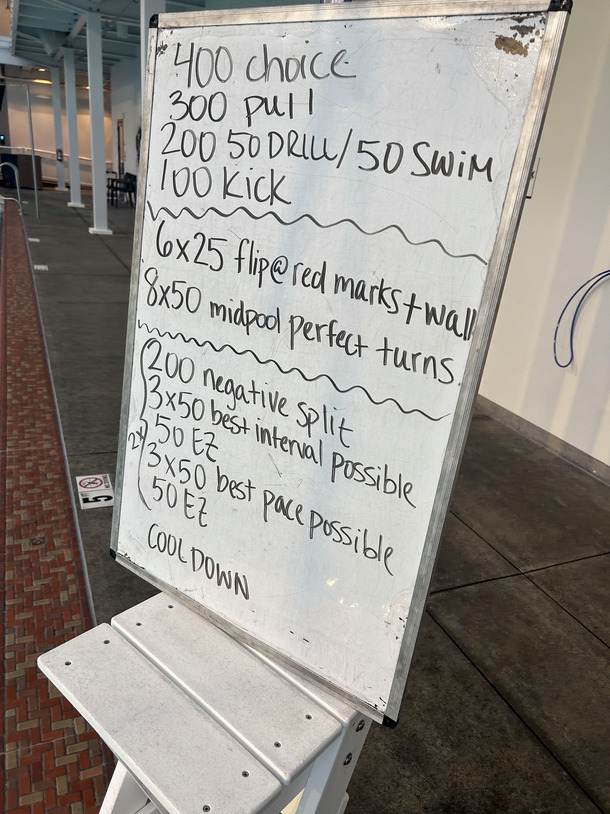 400 choice
300 pull
200 50 DRILL/50 SWIM
100 Kick
6x25 flip@red marks+wall
8x50 midpool perfect turns
200 negative split
3x50 best interval possible
50 EZ
2x
3x50 best pace possible
50 EZ
COOL DOWN
5